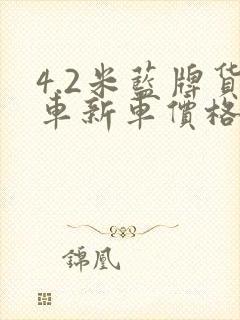 4.2米藍牌貨
車新車價格
錦凰